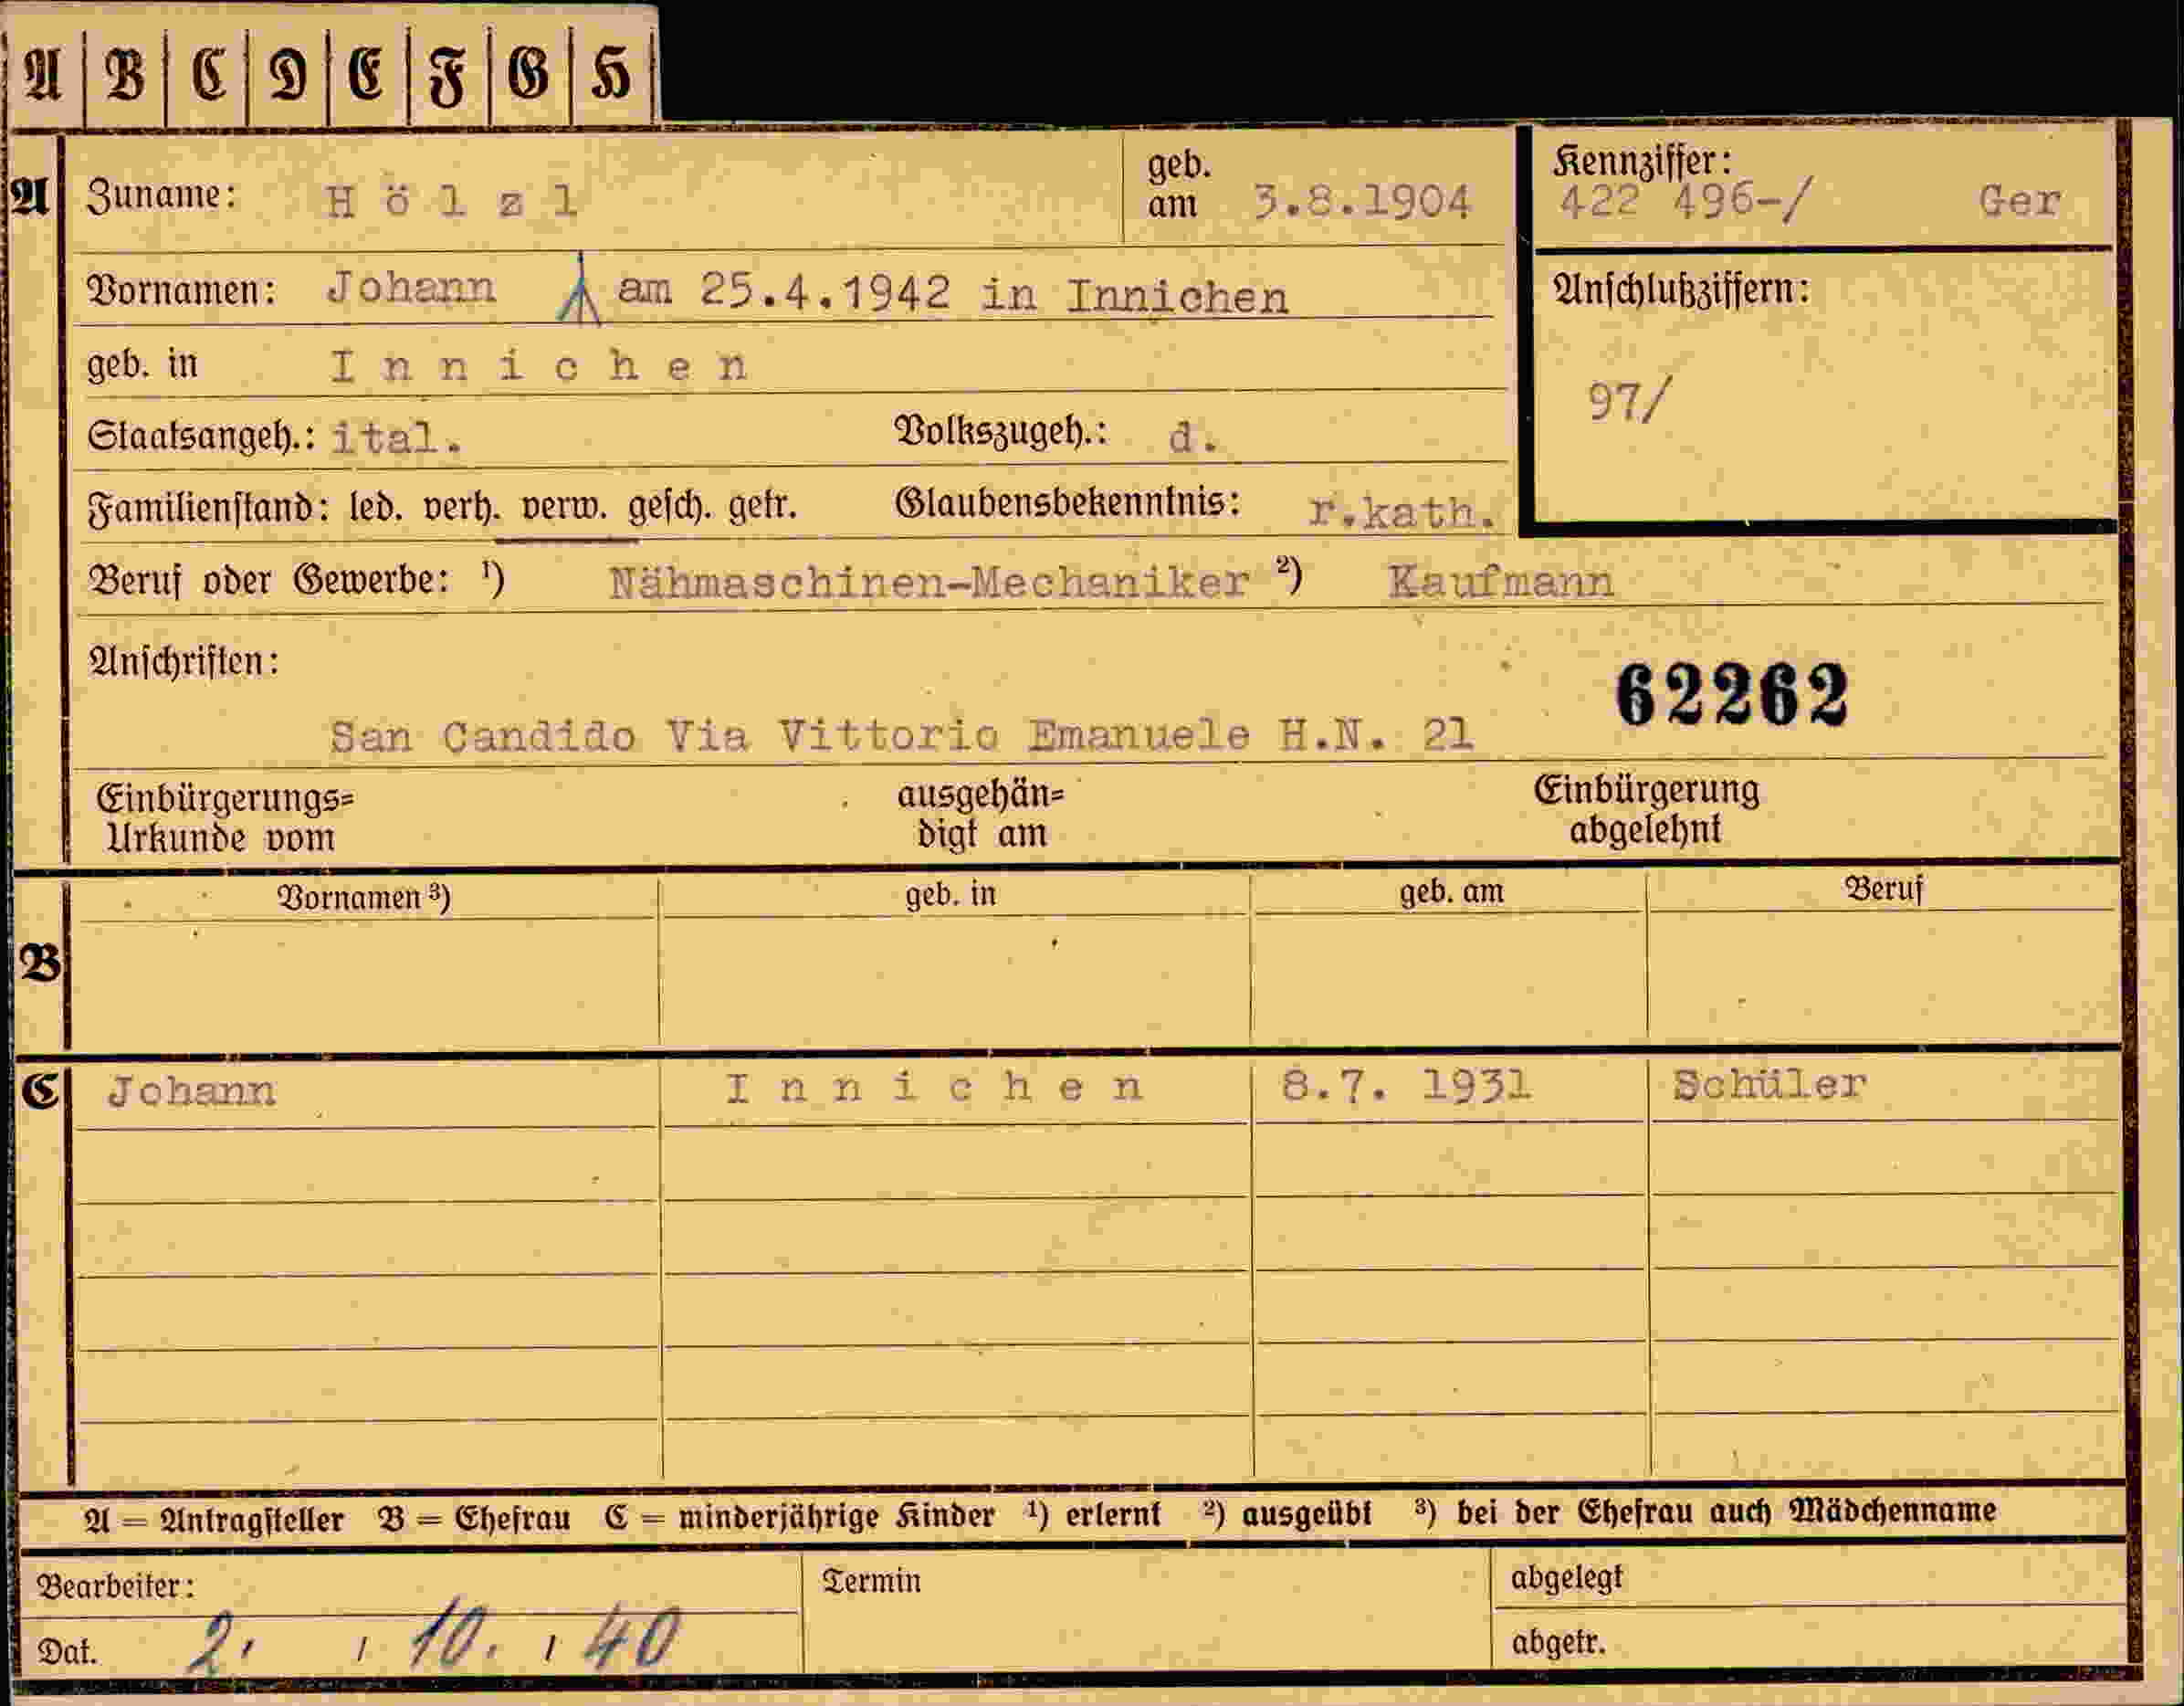 A B C D E F G H
A Zuname: Hölzl geb. am 3.8.1904 Kennziffer: 422 496-/ Ger
Vornamen: Johann am 25.4.1942 in Innichen Anschlußziffern:
geb. in Innichen 97/
Staatsangeh.: ital. Volkszugeh.: d.
Familienstand: led. verh. verw. gesch. getr. Glaubensbekenntnis: r.kath.
Beruf oder Gewerbe: ¹) Nähmaschinen-Mechaniker ²) Kaufmann
Anschriften: 62262
San Candido Via Vittorio Emanuele H.N. 21
Einbürgerungs= ausgehän= Einbürgerung
Urkunde vom digt am abgelehnt
Vornamen ³) geb. in geb. am Beruf
B
C Johann Innichen 8.7. 1931 Schüler
A = Antragsteller B = Ehefrau C = minderjährige Kinder ¹) erlernt ²) ausgeübt ³) bei der Ehefrau auch Mädchenname
Bearbeiter: Termin abgelegt
Dat. 2. / 10. / 40 abgetr.